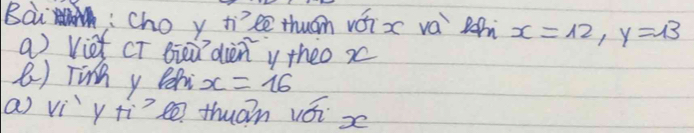 Bài : Cho y tỉ lệ thuận với x và khi x = 12, y = 13
a) Viết CT biểu diễn y theo x
b) Tính y khi x = 16
a) vì y tỉ lệ thuận với x